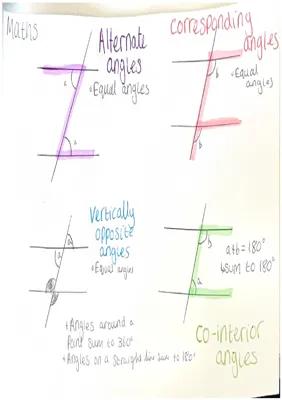 Maths
Alternate
angles
• Equal angles
a
a
Corresponding
angles
• Equal
angles
b
b
Vertically
opposite
angles
• Equal angles
a
a
• Angles around a
Point sum to 360°
• Angles on a straight line sum to 180°
b
a
a+b=180°
↳sum to 180°
Co-interior
angles